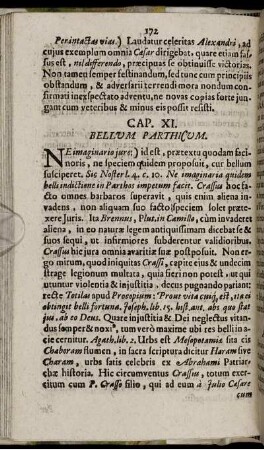 172
Perintactas vias.) Laudatur celeritas Alexandri, ad
cujus exemplum omnia Cæsar dirigebat, quare etiam fal-
sus est, nil differendo, præcipuas se obtinuisse victorias.
Non tamen semper festinandum, sed tunc cum principiis
obstandum, & adversarii terrendi mora nondum con-
firmati inexspectato adventu, ne novas copias forte jun-
gant cum veteribus & minus eis possit resisti.
CAP. XI.
BELLUM PARTHICUM.
NE imaginario jure:) id est, prætextu quodam faci-
noris, ne speciem quidem proposuit, cur bellum
susciperet. Sic Noster l. 4. c. 10. Ne imaginaria quidem
belli indictione in Parthos impetum facit. Crassus hoc fa-
cto omnes barbaros superavit, quis enim aliena in-
vadens, non aliquam suo facto speciem solet præte-
xere Juris. Ita Brennus, Plut. in Camillo, cùm invaderet
aliena, in eo naturæ legem antiquissimam dicebat se &
suos sequi, ut infirmiores subderentur validioribus.
Crassus hic jura omnia avaritiæ suæ postposuit. Non er-
go mirum, quod iniquitas Crassi, capite ejus & undecim
strage legionum multata, quia fieri non potest, ut qui
utuntur violentia & injustitia, decus pugnando pariant:
recte Totilas apud Procopium: Prout vita cuiq; est, ita ei
obtingit belli fortuna. Joseph. lib. 15. hist. ant. abs quo stat
jus, ab eo Deus. Quare injustitia & Dei neglectus vitan-
dus semper & noxi⁹, tum verò maxime ubi res belli in a-
cie cernitur. Agath. lib. 2. Urbs est Mesopotamiæ sita cis
Chaboram flumen, in sacra scriptura dicitur Haram sive
Charam, urbs satis celebris ex Abrahami Patriar-
chæ historia. Hic circumventus Crassus, totum exer-
citum cum P. Crasso filio, qui ad eum à Julio Cæsare
cum